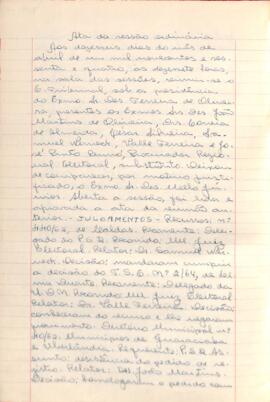 Ata da sessão ordinária
Aos dezesseis dias do mês de
abril de um mil novecentos e ses-
senta e quatro, às dezesseis horas,
na sala das sessões, reuniu-se o
E. Tribunal, sob a presidência
do Exmo. Sr. Des. Ferreira de Oliveira
presentes os Exmos. Srs. Des. João
Martins de Oliveira, Drs. Correia
de Almeida, Cesar Silveira, Sa-
muel Werneck, Valle Ferreira e Jo-
sé Procurador Regio-
nal Eleitoral, substituto. Deixou
de comparecer, por motivo justi-
ficado, o Exmo. Sr. Des. Mello Jú-
nior. Aberta a sessão, foi lida e
aprovada a ata da reunião an-
terior. - JULGAMENTOS - Recurso n.º
de Recorrente: Dele-
gado do P.S.D. Recorrido: MM. Juiz
Eleitoral. Relator: Dr. Samuel Wer-
neck. Decisão: mandaram cumprir
a decisão do T.S.E. N.º 2/64, de
Duarte. Recorrente: Delegado da
U.D.N. Recorrido: MM. Juiz Eleitoral
Relator: Dr. Valle Ferreira. Decisão:
conheceram do recurso e lhe negaram
provimento. Diretório Municipal n.º
Municípios de
e Uberlândia. Requerente: P.S.D. As-
sunto: desistência do pedido de re-
gistro. Relator: Des. João Martins.
Decisão: homologaram o pedido com